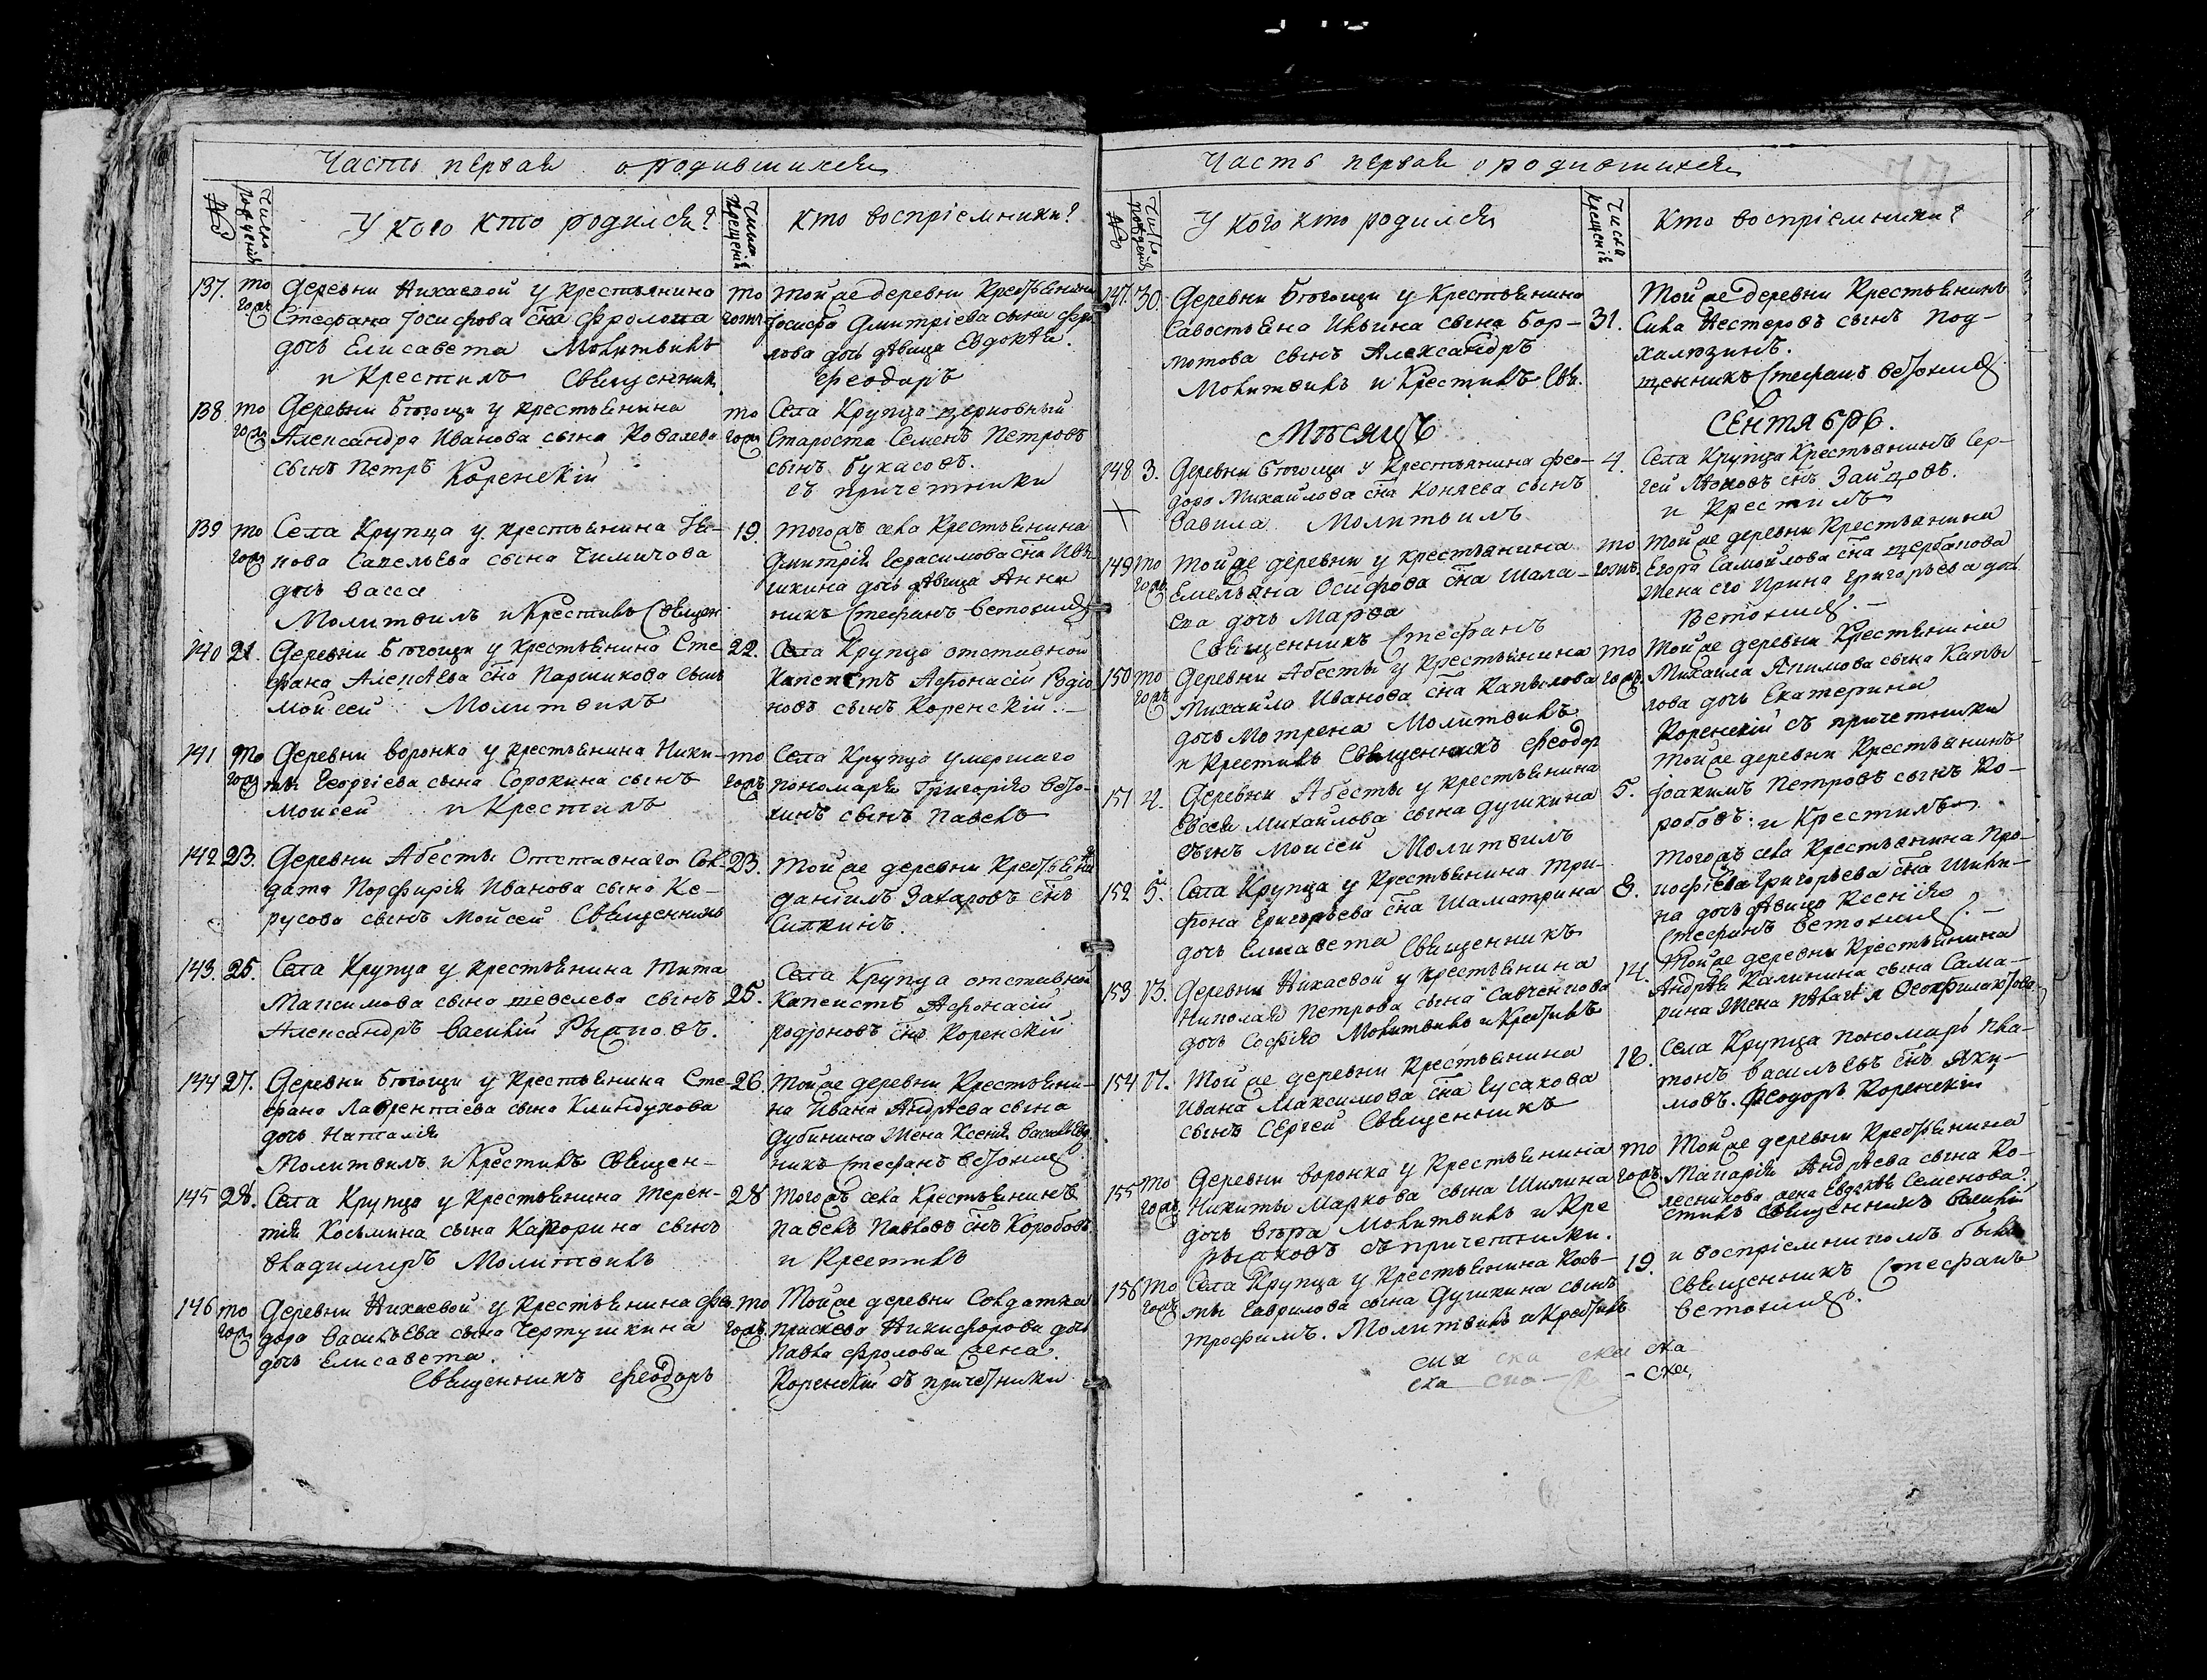 Часть первая о родившихся
№
Число рожденія
У кого кто родился?
Число крещенія
Кто воспріемники?
137. тогож Деревни Нихаевой у крестьянина
Стефана Іосифова сна Фролова
дочь Елисавета Молитвилъ
и Крестилъ Священник
тогож Тойже деревни Крестьянина
Іосифа Дмитріева сына Фро
лова дочь двица Евдокѣя.
Феодоръ
138 тогож Деревни Бтогощи у крестьянина
Александра Иванова сына Ковалева
сынъ Петръ
Коренскій
тогож Села Крупца церковный
Староста Семенъ Петровъ
сынъ Букасовъ.
съ причетники
139 тогож Села Крупца у крестьянина
нова Савельева сына Чимичова
дочь Васса
Молитвилъ и Крестилъ Священ
19. Тогожъ села Крестьянина
Дмитрія Герасимова сна
шкина дочь двица Анна
никъ Стефанъ Ветохинъ
140 21. Деревни Бтогощи у крестьянина Сте
фана Алексѣева сна Паршикова сынъ
Моисей Молитвилъ
22. Села Крупца отставной
Капеистъ Афонасій Родіо
новъ сынъ Коренскій.
141 тогож Деревни Воронка у крестьянина Ники-
ты Георгіева сына Сорокина сынъ
Моисей и Крестилъ
тогожъ Села Крупца умершаго
пономаря Григорія Вето-
хинъ сынъ Павелъ
142 23. Деревни Абесты Отставнаго Сол
дата Порфирія Иванова сына Ке-
русова сынъ Моисей Священникъ
23. Тойже деревни Крестьянинъ
Даніилъ Захаровъ снъ
Силкинъ.
143. 25. Села Крупца у крестьянина Тита
Максимова сына Шевелева сынъ
Александръ Василій Рыжковъ.
25. Села Крупца отставной
Капеистъ Афонасій
Родіоновъ снъ Коренскій
144 27. Деревни Бтогощи у Крестьянина Сте-
фана Лаврентіева сына Клиндухова
дочь Наталія
Молитвилъ и Крестилъ Священ-
26. Тойже деревни Крестьяни-
на Ивана Андрѣева сына
Дубинина жена Ксенія Васильева
никъ Стефанъ Ветохинъ
145 28. Села Крупца у Крестьянина Терен-
тія Косьмина сына Каторина сынъ
Владимиръ Молитвилъ
28 Тогожъ села Крестьянинъ
Павелъ Павловъ снъ Коробовъ
и Крестилъ
146 тогож Деревни Нихаевой у Крестьянина Фео
дора Васильева сына Чертушкина
дочь Елисавета.
Священникъ Феодоръ
тогожъ. Тойже деревни Солдатка
Праскева Никифорова дочь
Павла Фролова жена.
Коренскій съ причетники
Часть первая о родившихся
77
№
Число рожденія
У кого кто родился
Числа крещеній
Кто воспріемники?
147. 30. Деревни Бтогощи у Крестьянина
Савостьяна Ильина сына Бор-
мотова сынъ Александръ
Молитвилъ и Крестилъ Свя.
31. Тойже деревни Крестьянинъ
Сила Нестеровъ сынъ Под-
халюзинъ.
щенникъ Стефанъ Ветохинъ
Мѣсяцъ Сентябрь.
148 3. Деревни Бтогощи у Крестьянина Фео-
дора Михайлова сна Коняева сынъ
Вавила Молитвилъ
4. Села Крупца Крестьянинъ Сер-
гей Леоновъ снъ Зайцовъ.
и Крестилъ
149 тогожъ Тойже деревни у крестьянина
Емельяна Осифова сна Шала-
ева дочь Марфа
Священникъ Стефанъ
тогожъ. Тойже деревни Крестьянина
Егора Самойлова сна Щербакова
жена его Ирина Григорьева дочь
Ветохинъ.
150 тогожъ Деревни Абесты у Крестьянина
Михайла Иванова сна Капылова
дочь Мотрена Молитвилъ
и Крестилъ Священникъ Феодор
тогож. Тойже деревни Крестьянина
Михаила Якимова сына Капы
лова дочь Екатерина
Коренскій съ причетники
151 4. Деревни Абесты у крестьянина
Евсея Михайлова сына Душкина
сынъ Моисей Молитвилъ
5. Тойже деревни Крестьянинъ
Іоакимъ Петровъ сынъ Ко-
робовъ: и Крестилъ
152 5. Села Крупца у Крестьянина Три-
фона Григорьева сна Шаматрина
дочь Елисавета Священникъ
8. Тогожъ села Крестьянина Про-
кофіева Григорьева сна Шики-
на дочь двица Ксенія
Стефанъ Ветохинъ.
153 13. Деревни Нихаевой у крестьянина
Николая Петрова сына Савченкова
дочь Софія Молитвилъ и Крестилъ
14. Тойже деревни Крестьянина
Андрѣя Калинина сына Сама-
рина жена Пелагея Феофилактова
154 17. Тойже деревни Крестьянина
Ивана Максимова сна Гусакова
сынъ Сергей Священникъ
18. Села Крупца Пономарь Пла-
тонъ Васильевъ снъ Яки-
мовъ. Феодоръ Коренскій
155 тогож Деревни Воронка у Крестьянина
Никиты Маркова сына Шилина
дочь Вѣра Молитвилъ и Кре
Рыжковъ съ причетники.
тогожъ. Тойже деревни Крестьянина
Макарія Андрѣева сына Ко-
лесникова жена Евдокѣя Семенова
стилъ Священникъ Василій
156 тогож Села Крупца у Крестьянина Кось-
мы Гаврилова сына Душкина сынъ
Трофимъ. Молитвилъ и Крестилъ
19. и воспріемникомъ былъ
Священникъ Стефанъ
Ветохинъ.